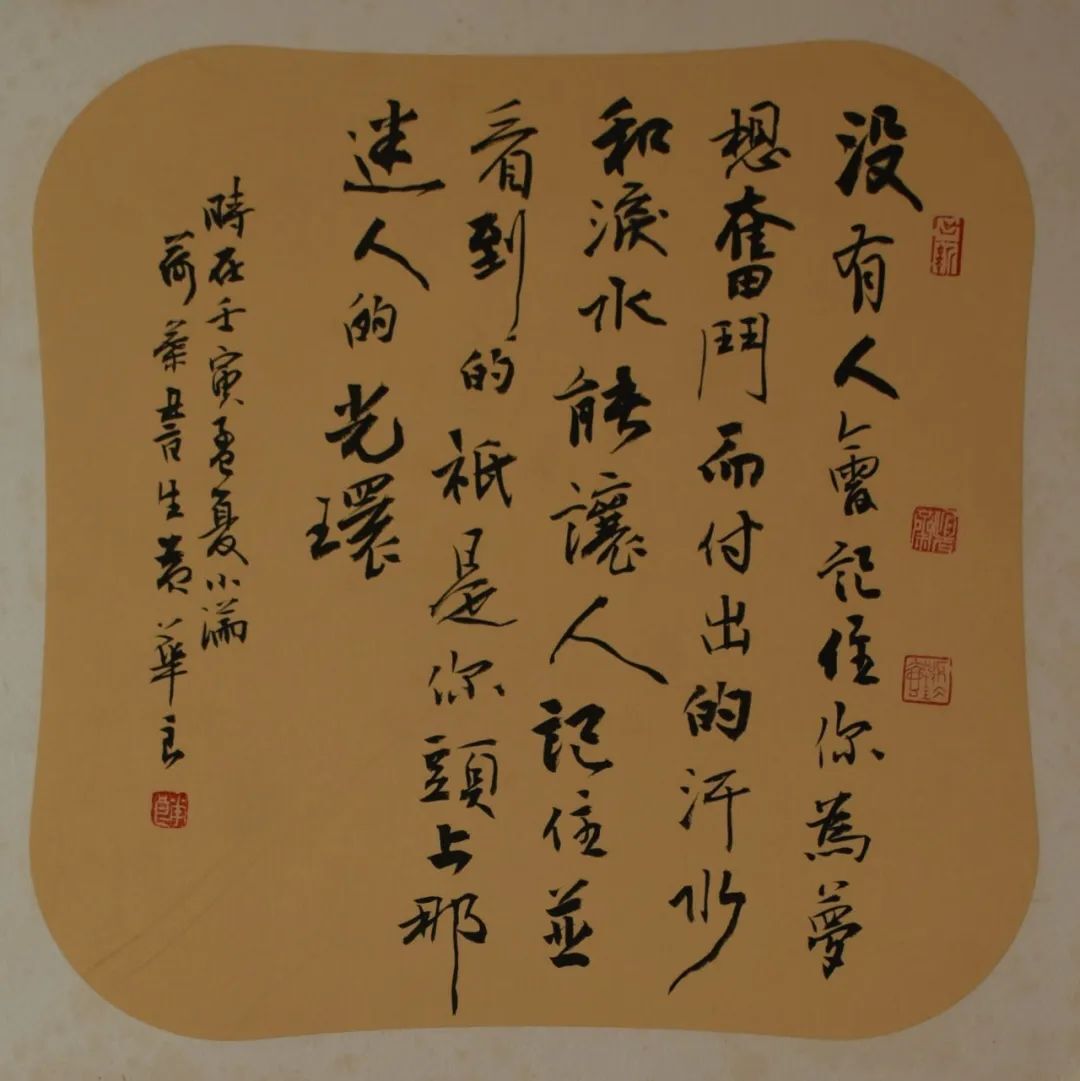 没有人會記住你為夢
想奮鬥而付出的汗水
和淚水能讓人記住並
看到的祇是你頭上那
迷人的光環
時在壬寅孟夏小滿
荷葉書生黄華良